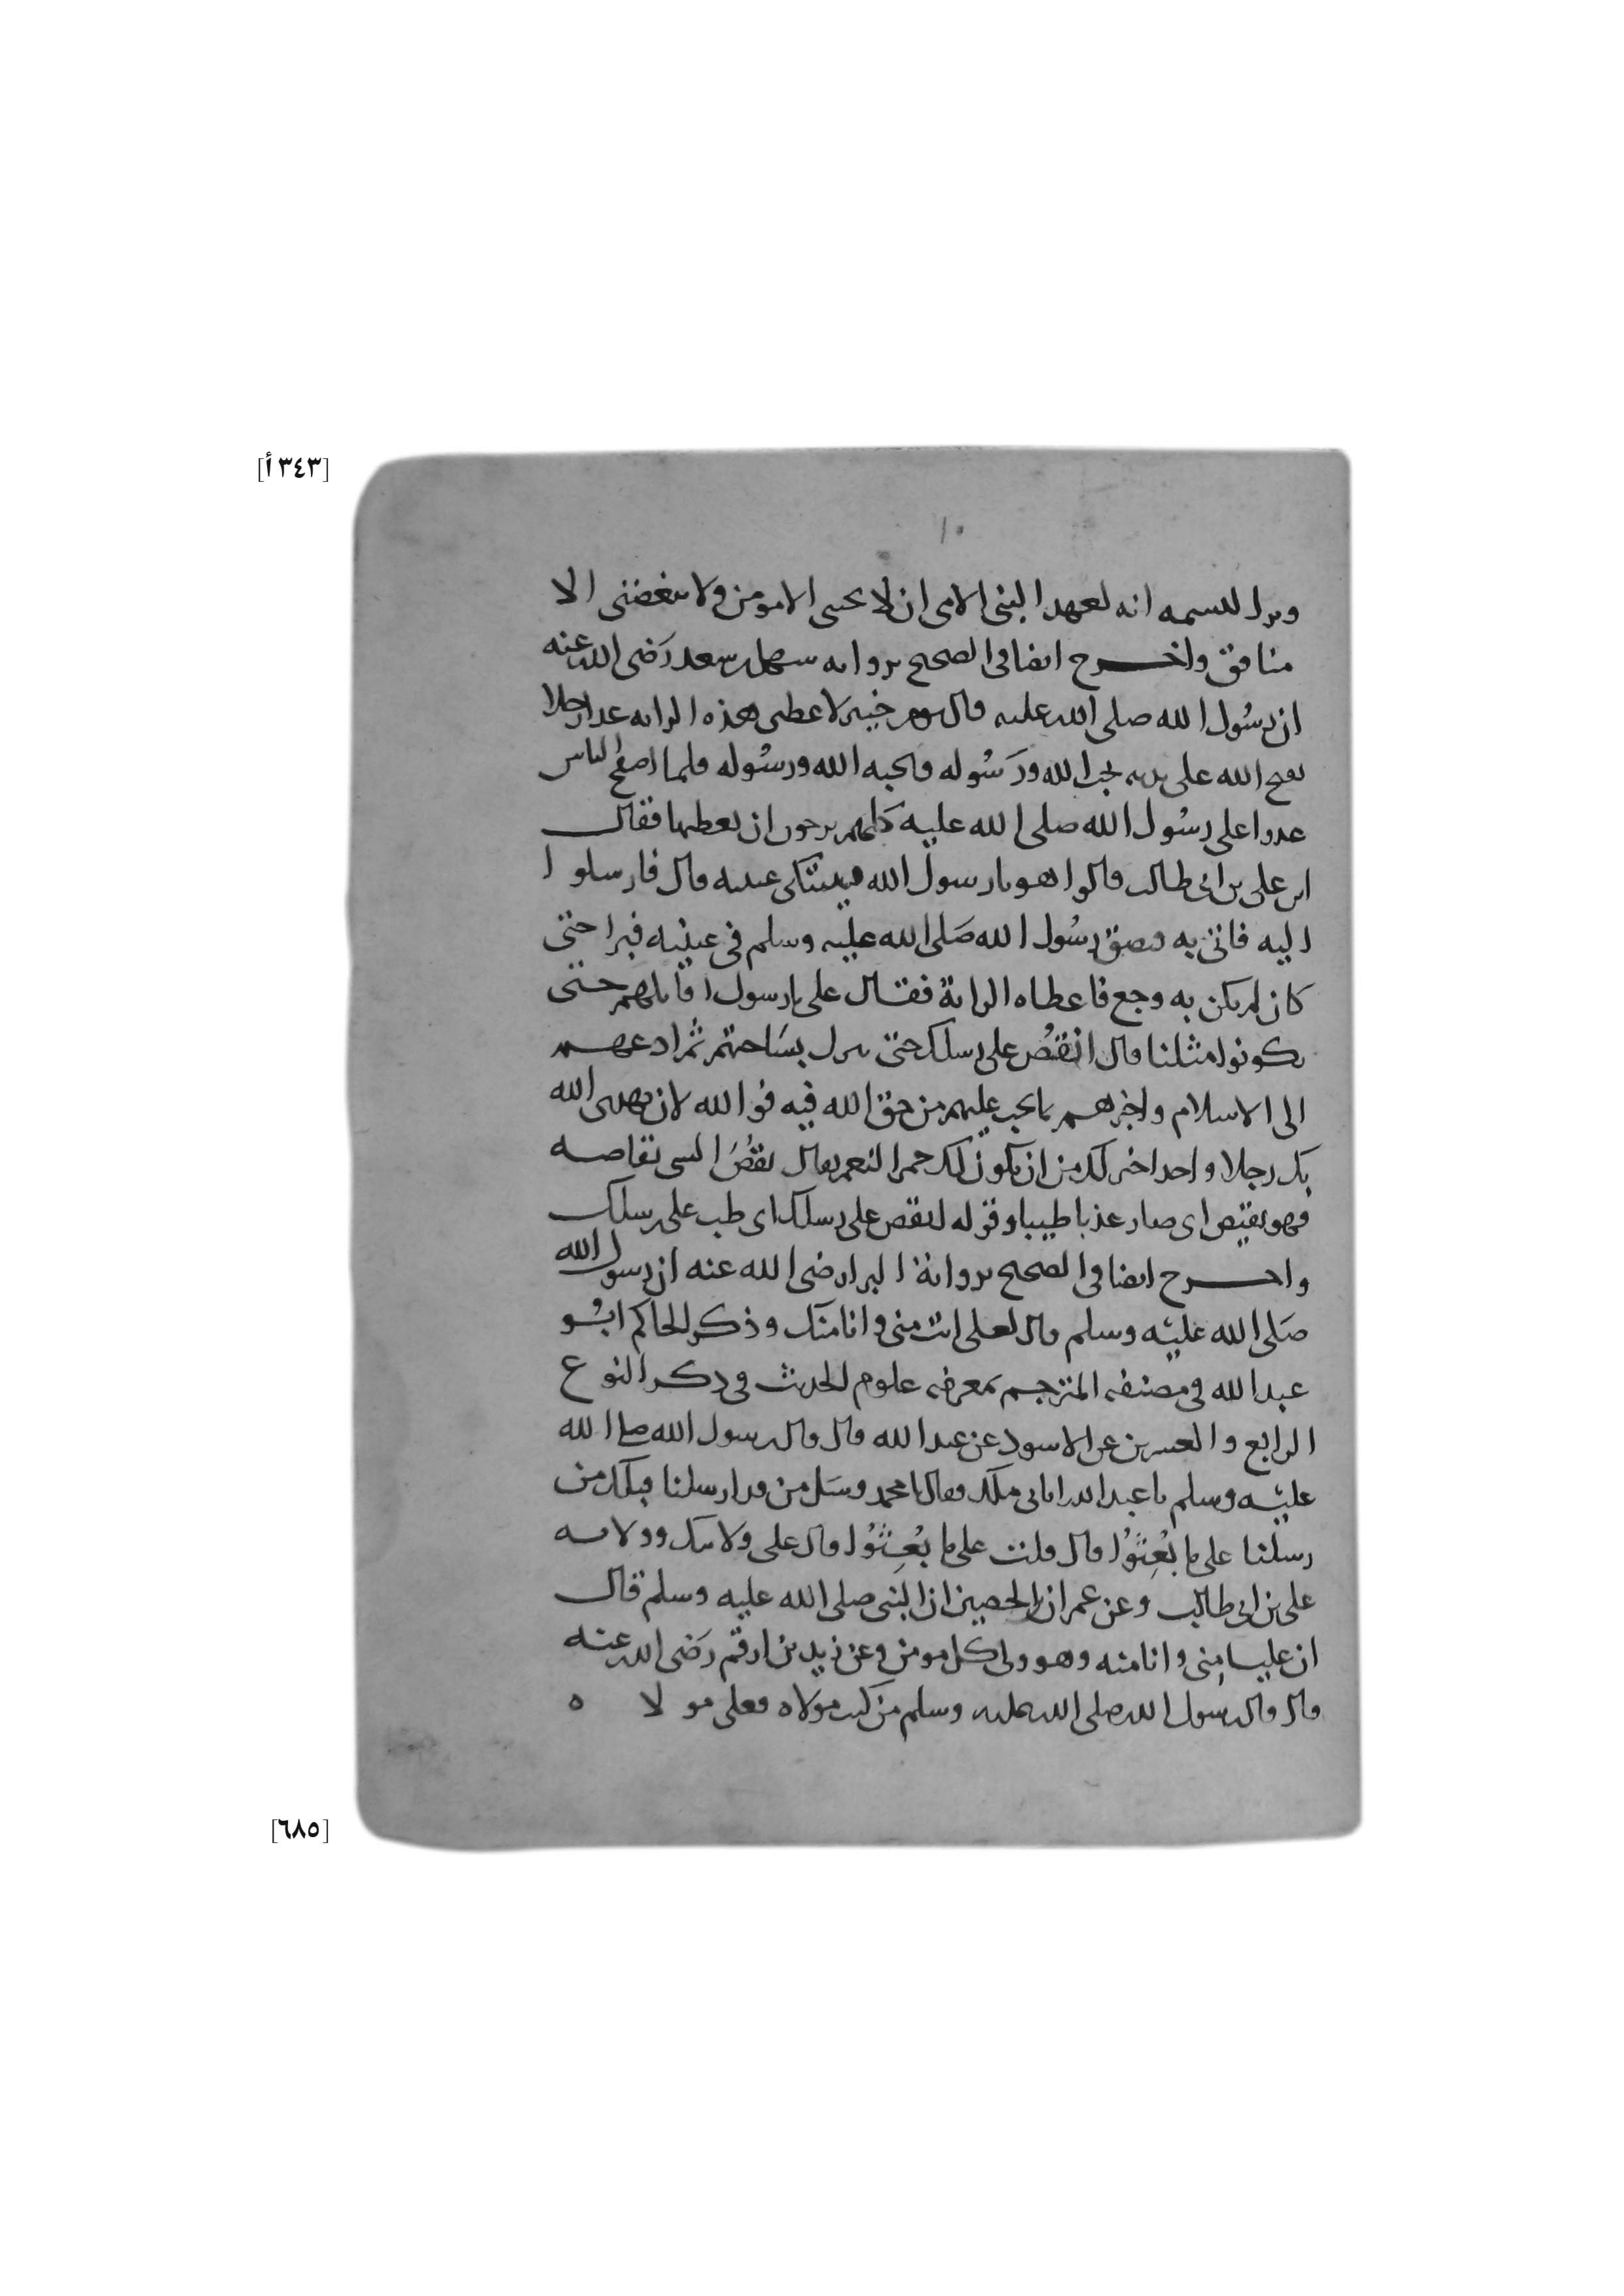 [٣٤٣ أ]
١٠
وبرا النسمه انه لعهد النبي الامي ان لا يحبني الا مومن ولا يبغضني الا
منافق واخرج ايضا في الصحيح بروايه سهل بن سعد رَضي الله عنه
ان رسُول الله صلى الله عليه قال يوم خيبر لاعطين هذه الرايه غدا رجلا
يفتح الله على يديه يحب الله ورَسُوله ويحبه الله ورسُوله فلما اصبح الناس
غدوا على رسُول الله صلى الله عليه كلهم يرجون ان يعطيها فقال
اين علي بن ابي طالب قالوا هو يا رسول الله يشتكي عينيه قال فارسلوا
اليه فاتي به فبصق رسُول الله صَلى الله عليه وسلم في عينيه فبرا حتى
كان لم يكن به وجع فاعطاه الراية فقال علي يا رسول اقاتلهم حتى
يكونوا مثلنا قال انقُص على رسلك حتى تنزل بسَاحتهم ثُم ادعهم
الى الاسلام واخبرهم بما يجب عليهم من حق الله فيه فوالله لان يهدي الله
بك رجلا واحدا خير لك من ان يكون لك حمر النعم يقال نقُصَ الشي نقاصه
فهو نقيص اي صار عذبا طيبا وقوله انقص على رسلك اي طب على رسلك
واخرج ايضا في الصحيح بروايَة البرا رضي الله عنه ان رسول الله
صَلى الله عليه وسلم قال لعلي انت مني وانا منك وذكر الحاكم ابُو
عبد الله في مصنفه المترجم بمعرفه علوم الحديث في ذكر النوع
الرابع والعشرين عن الاسود عن عبد الله قال قال رسول الله صلى الله
عليه وسلم يا عبد الله اتاني ملك فقال يا محمد وسَل من قد ارسلنا قبلك من
رسلنا على ما بُعِثوُا قال قلت على ما بُعِثوُا قال على ولايتك وولايه
علي بن ابي طالب وعن عمران بن الحصين ان النبي صلى الله عليه وسلم قال
ان عليا مني وانا منه وهو ولي كل مومن وعن زيد بن ارقم رَضي الله عنه
قال قال رسول الله صلى الله عليه وسلم من كنت مولاه فعلي مولاه
[٦٨٥]